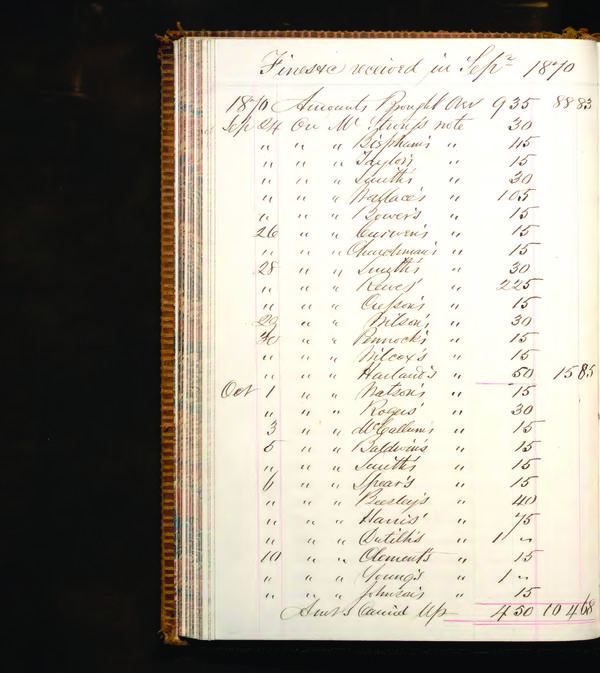 Fines &c received in Sepr 1870
1870 Amounts Brought Over 9 35 88 83
Sep 24 On Mr Strong's note 30
" " " Bispham's " 45
" " " Taylor's " 15
" " " Smith's " 30
" " " Wallace's " 1 05
" " " Bower's " 15
26 " " Curwen's " 15
" " " Churchman's " 15
28 " " Smith's " 30
" " " Rewes' " 2 25
" " " Cresson's " 15
29 " " Wilson's " 30
30 " " Pennock's " 15
" " " Wilcox's " 15
" " " Harland's " 50 15 85
Oct 1 " " Watson's " 15
" " " Rogers' " 30
3 " " McCallum's " 15
5 " " Baldwin's " 15
" " " Smith's " 15
6 " " Spear's " 15
" " " Beesley's " 40
" " " Harris' " 75
" " " Dutilh's " 1 "
10 " " Clement's " 15
" " " Young's " 1 "
" " " Johnson's " 15
Amts Carried Up 4 50 104 68